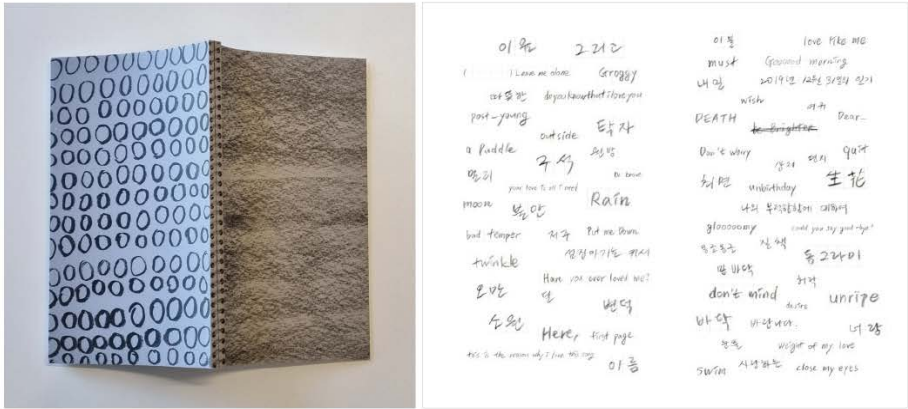 이 원 그리고
Leave me alone. Groggy
따뜻한 do you know that i love you
post-young
outside 탁자
a Puddle 구석
멀리 Be brave
your love is all i need
moon 불안 Rain
bad temper 저주 Put me Down.
twinkle
Have you ever loved me?
오만 달 변덕
소원 Here, first page
this is the reason why I love this song
아름
이불 love like me
must Gooood morning
내일 2019년 12월 31일의 일기
wish
DEATH be Brighter Dear..
Don't worry 편지 quit
최면 unbirthday 生花
나의 부적합함에 대하여
gloooomy could you say good-bye?
산책 동그라미
땅바닥 허락
don't mind desire unripe
바닥 바랍니다. 너랑
weight of my love
swim 사랑하는 close my eyes